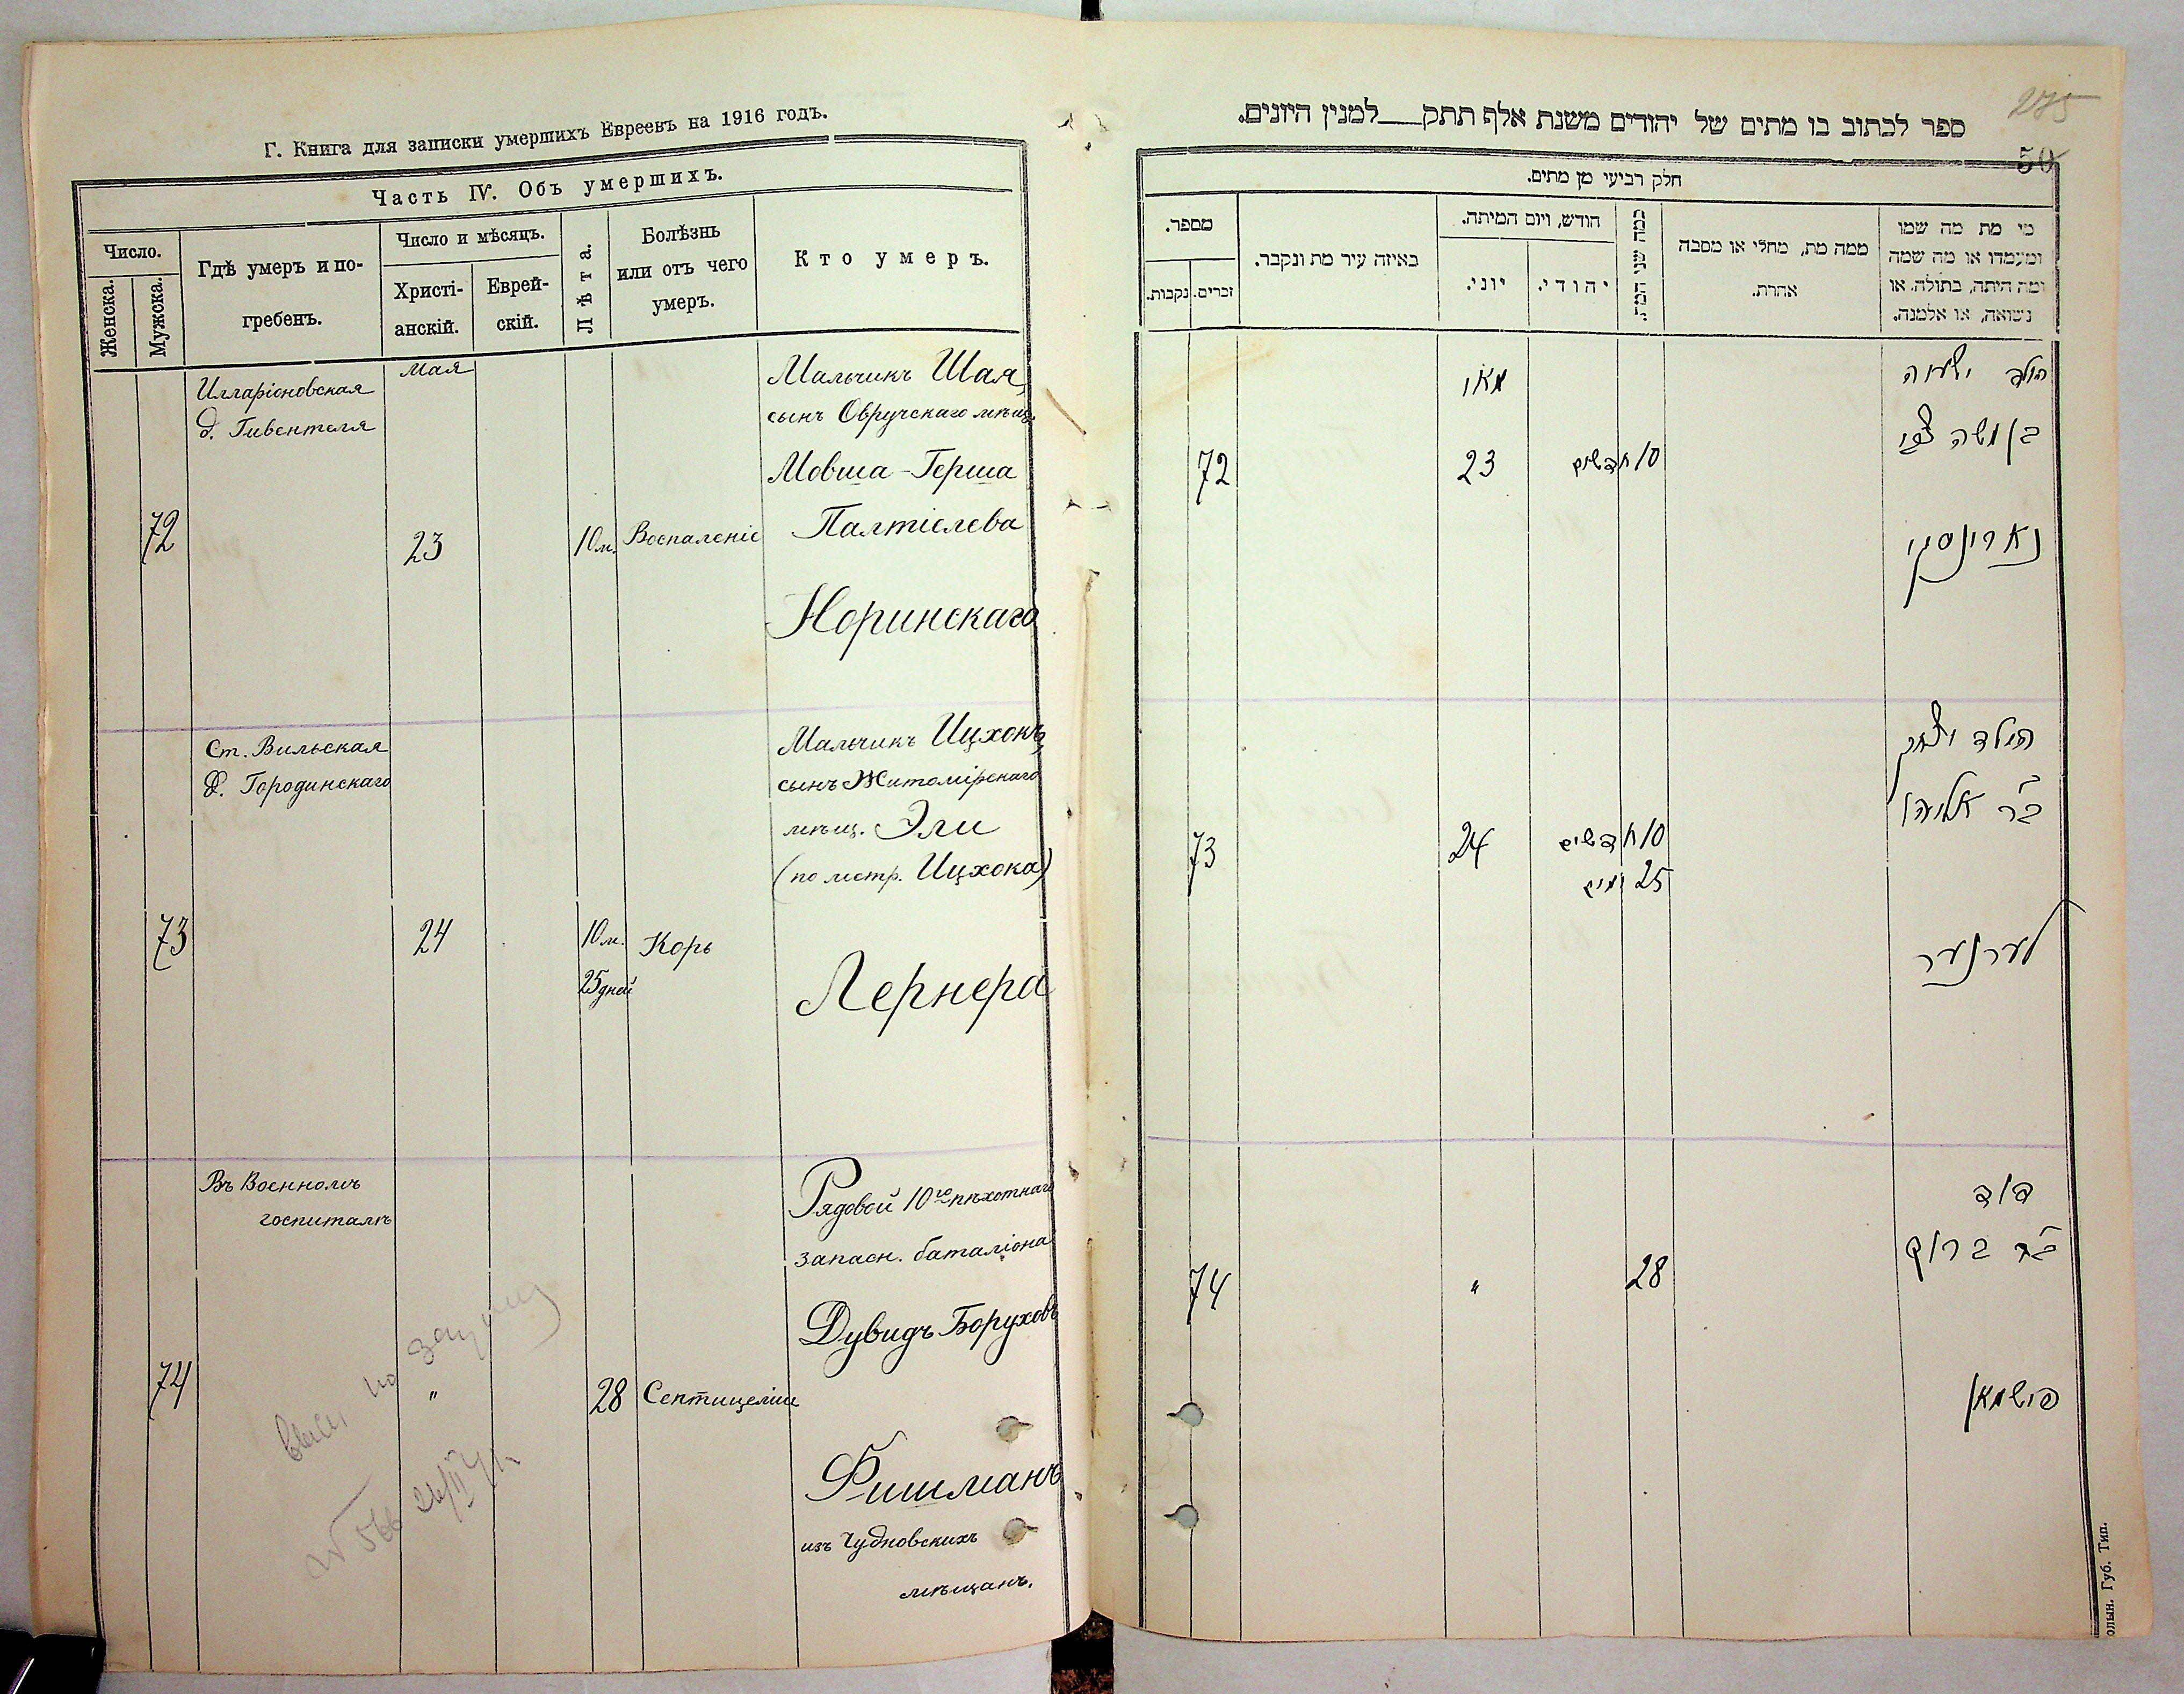 Г. Книга для записки умершихъ Евреевъ на 1916 годъ.
Часть IV. Объ умершихъ.
Число.
Женска.
Мужска.
Гдѣ умеръ и по-
гребенъ.
Число и мѣсяцъ.
Христі-
анскій.
Еврей-
скій.
Лѣта.
Болѣзнь
или отъ чего
умеръ.
Кто умеръ.
Мая
Илларіоновская
д. Гивентеля
72
23
10 м.
Воспаленіе
Мальчикъ Шая,
сынъ Овручскаго мѣщ.
Мовша-Герша
Палтіелева
Норинскаго
Ст. Вильская
д. Городинскаго
73
24
10 м.
25 дней
Корь
Мальчикъ Ицхокъ,
сынъ Житомірскаго
мѣщ. Эли
(по метр. Ицхока)
Лернера
Въ Военномъ
госпиталѣ
74
"
28
Септицеміи
Рядовой 10го пѣхотнаго
запасн. баталіона
Дувидъ Боруховъ
Фишманъ
изъ Чудновскихъ
мѣщанъ.
№ 566
ספר לכתוב בו מתים של יהודים משנת אלף תתק___למנין היונים.
275
50
חלק רביעי מן מתים.
מספר.
נקבות.
זכרים.
באיזה עיר מת ונקבר.
חודש, ויום המיתה.
יוני.
יהודי.
כמה שני המת.
ממה מת, מחלי או מסבה
אחרת.
מי מת מה שמו
ומעמדו או מה שמה
ומה היתה, בתולה, או
נשואה, או אלמנה.
מאי
הילד ישעיה
בן משה צבי
72
23
10 חדשים
נארינסקי
הילד יצחק
ב"ר אליהו
73
24
10 חדשים
25 ימים
לערנער
דוד
ב"ר ברוך
74
"
28
פישמאן
олын. Губ. Тип.